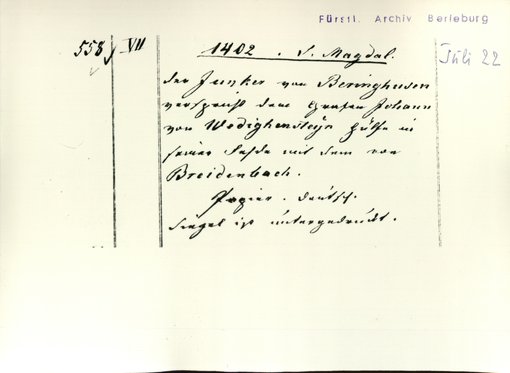 Fürstl. Archiv Berleburg
558 VII 1402 . S. Magdal. Juli 22
der Junker von Beringhusen
verspricht dem Grafen Johann
von Wedighensteyn Hülfe in
seiner Fehde mit dem von
Breidenbach.
Papier . deutsch.
Siegel ist untergedruckt.